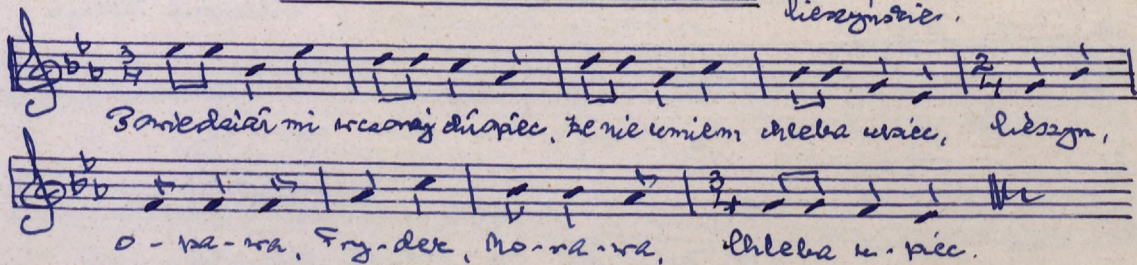 Cieszyńskie.
3 4 2 4
Powiedział mi wczoraj chłopiec, że nie umiem chleba upiec, Cieszyn,
3 4
O-pa-wa, Fry-dek, Mo-ra-wa, Chleba u-piec.